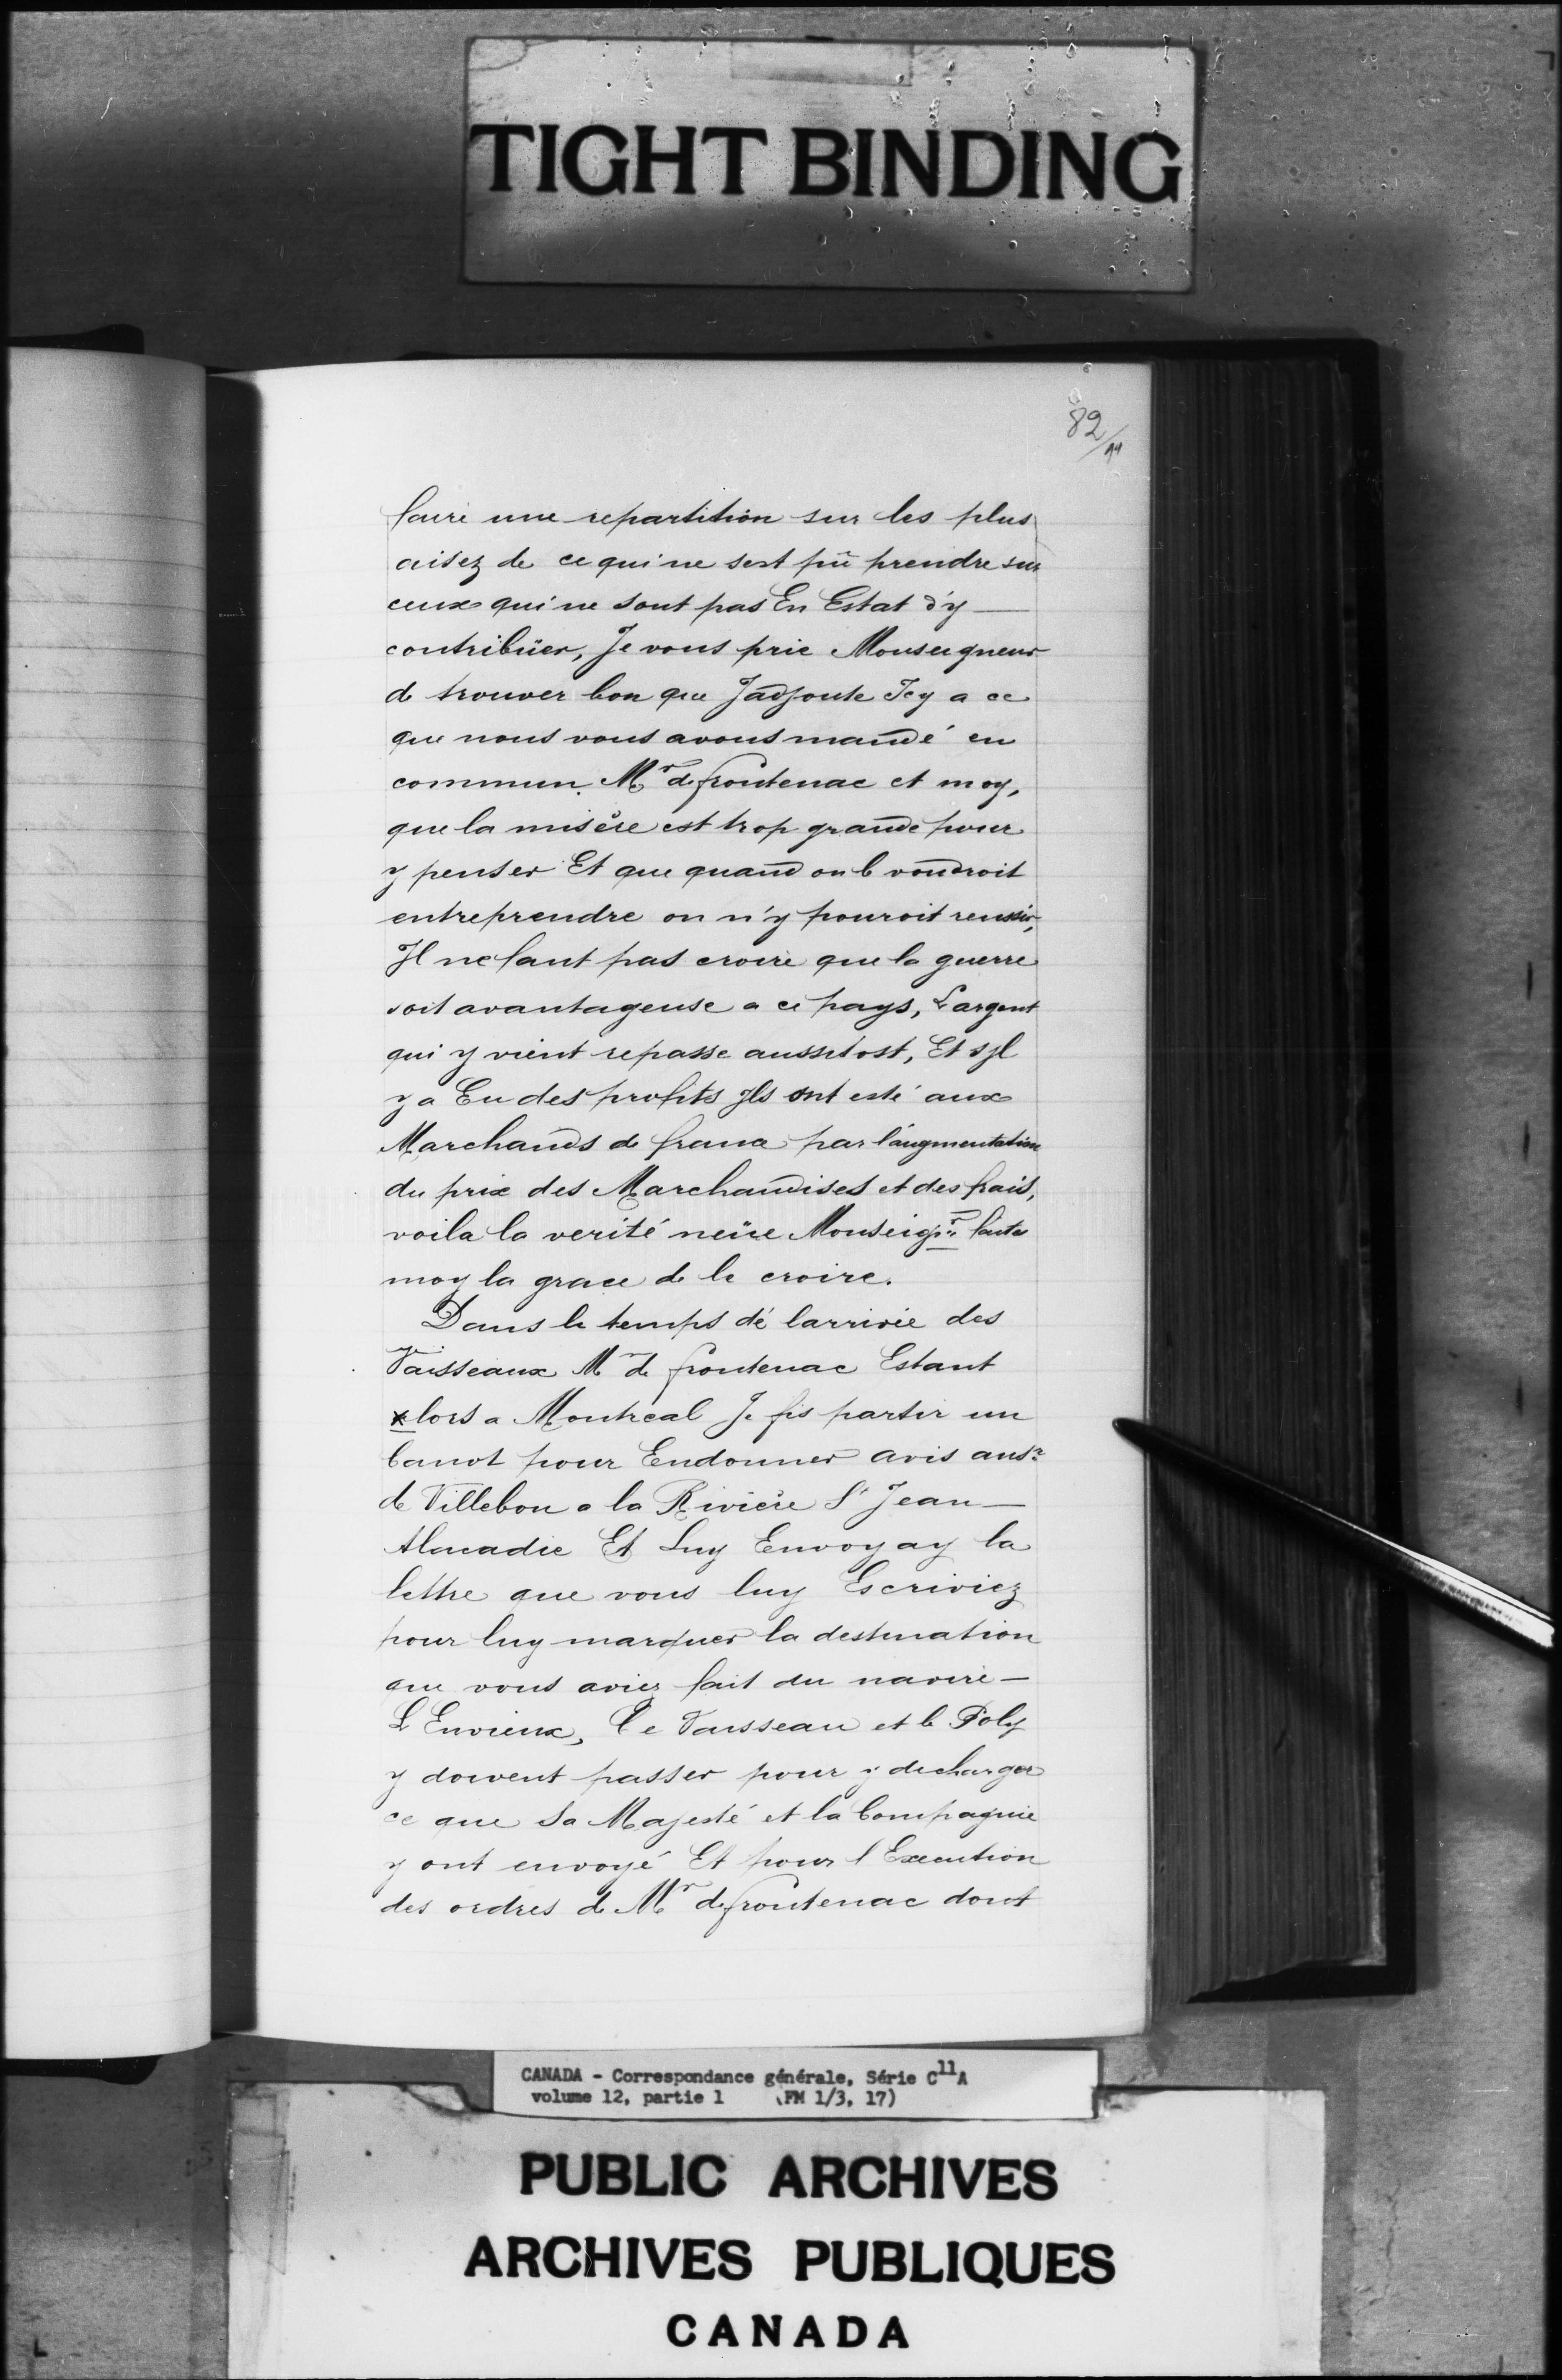 TIGHT BINDING
82
faire une repartition sur les plus
aisez de ce qui ne sest pû prendre sur
ceux qui ne sont pas En Estat d'y —
contribüer, Je vous prie Monseigneur
de trouver bon que Jadjoute Icy a ce
que nous vous avons mandé en
commun. Mr de frontenac et moy,
que la misère est trop grande pour
y penser Et que quand on le voudroit
entreprendre on n'y pouroit reussir,
Il ne faut pas croire que la guerre
soit avantageuse a ce pays, Largent
qui y vient repasse aussitost, Et sjl
y a Eu des profits Jls ont esté aux
Marchands de france par l'augmentation
du prix des Marchandises et des frais,
voila la verité neüe Monseigr faites
moy la grace de le croire.
Dans le temps dé larrivée des
Vaisseaux Mr de frontenac Estant
lors a Montreal Je fis partir un
Canot pour Endonner avis ausr
de Villebon a la Rivière St Jean —
Alacadie Et Luy Envoyay la
lettre que vous luy Escriviez
pour luy marquer la destination
que vous aviez fait du navire —
L'Envieux, Ce Vaisseau et le Poly
y doivent passer pour y decharger
ce que Sa Majesté et la Compagnie
y ont envoyé Et pour l'Execution
des ordres de Mr de frontenac dont
CANADA - Correspondance générale, Série C11A
volume 12, partie 1 (FM 1/3, 17)
PUBLIC ARCHIVES
ARCHIVES PUBLIQUES
CANADA